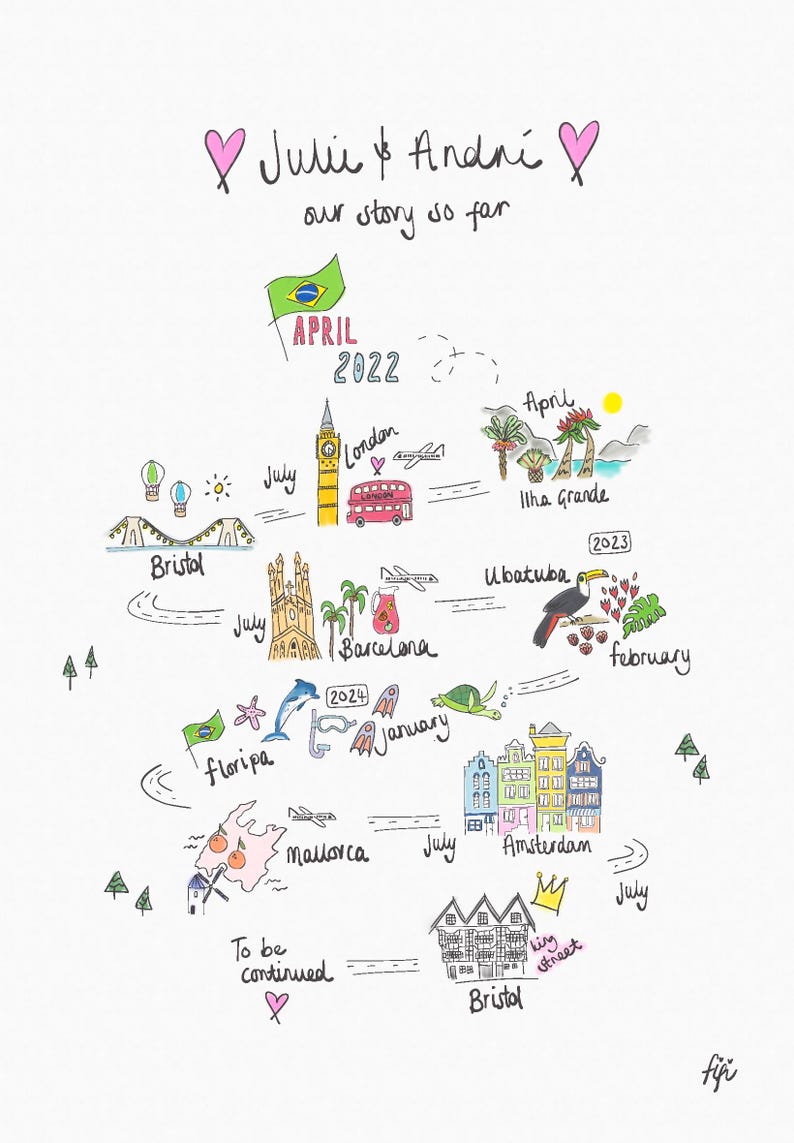 Julie & André
our story so far
APRIL
2022
April
Ilha Grande
London
LONDON
July
Bristol
July
Barcelona
2023
Ubatuba
february
2024
January
floripa
Mallorca
July
Amsterdam
July
king
street
Bristol
To be
continued
fifi